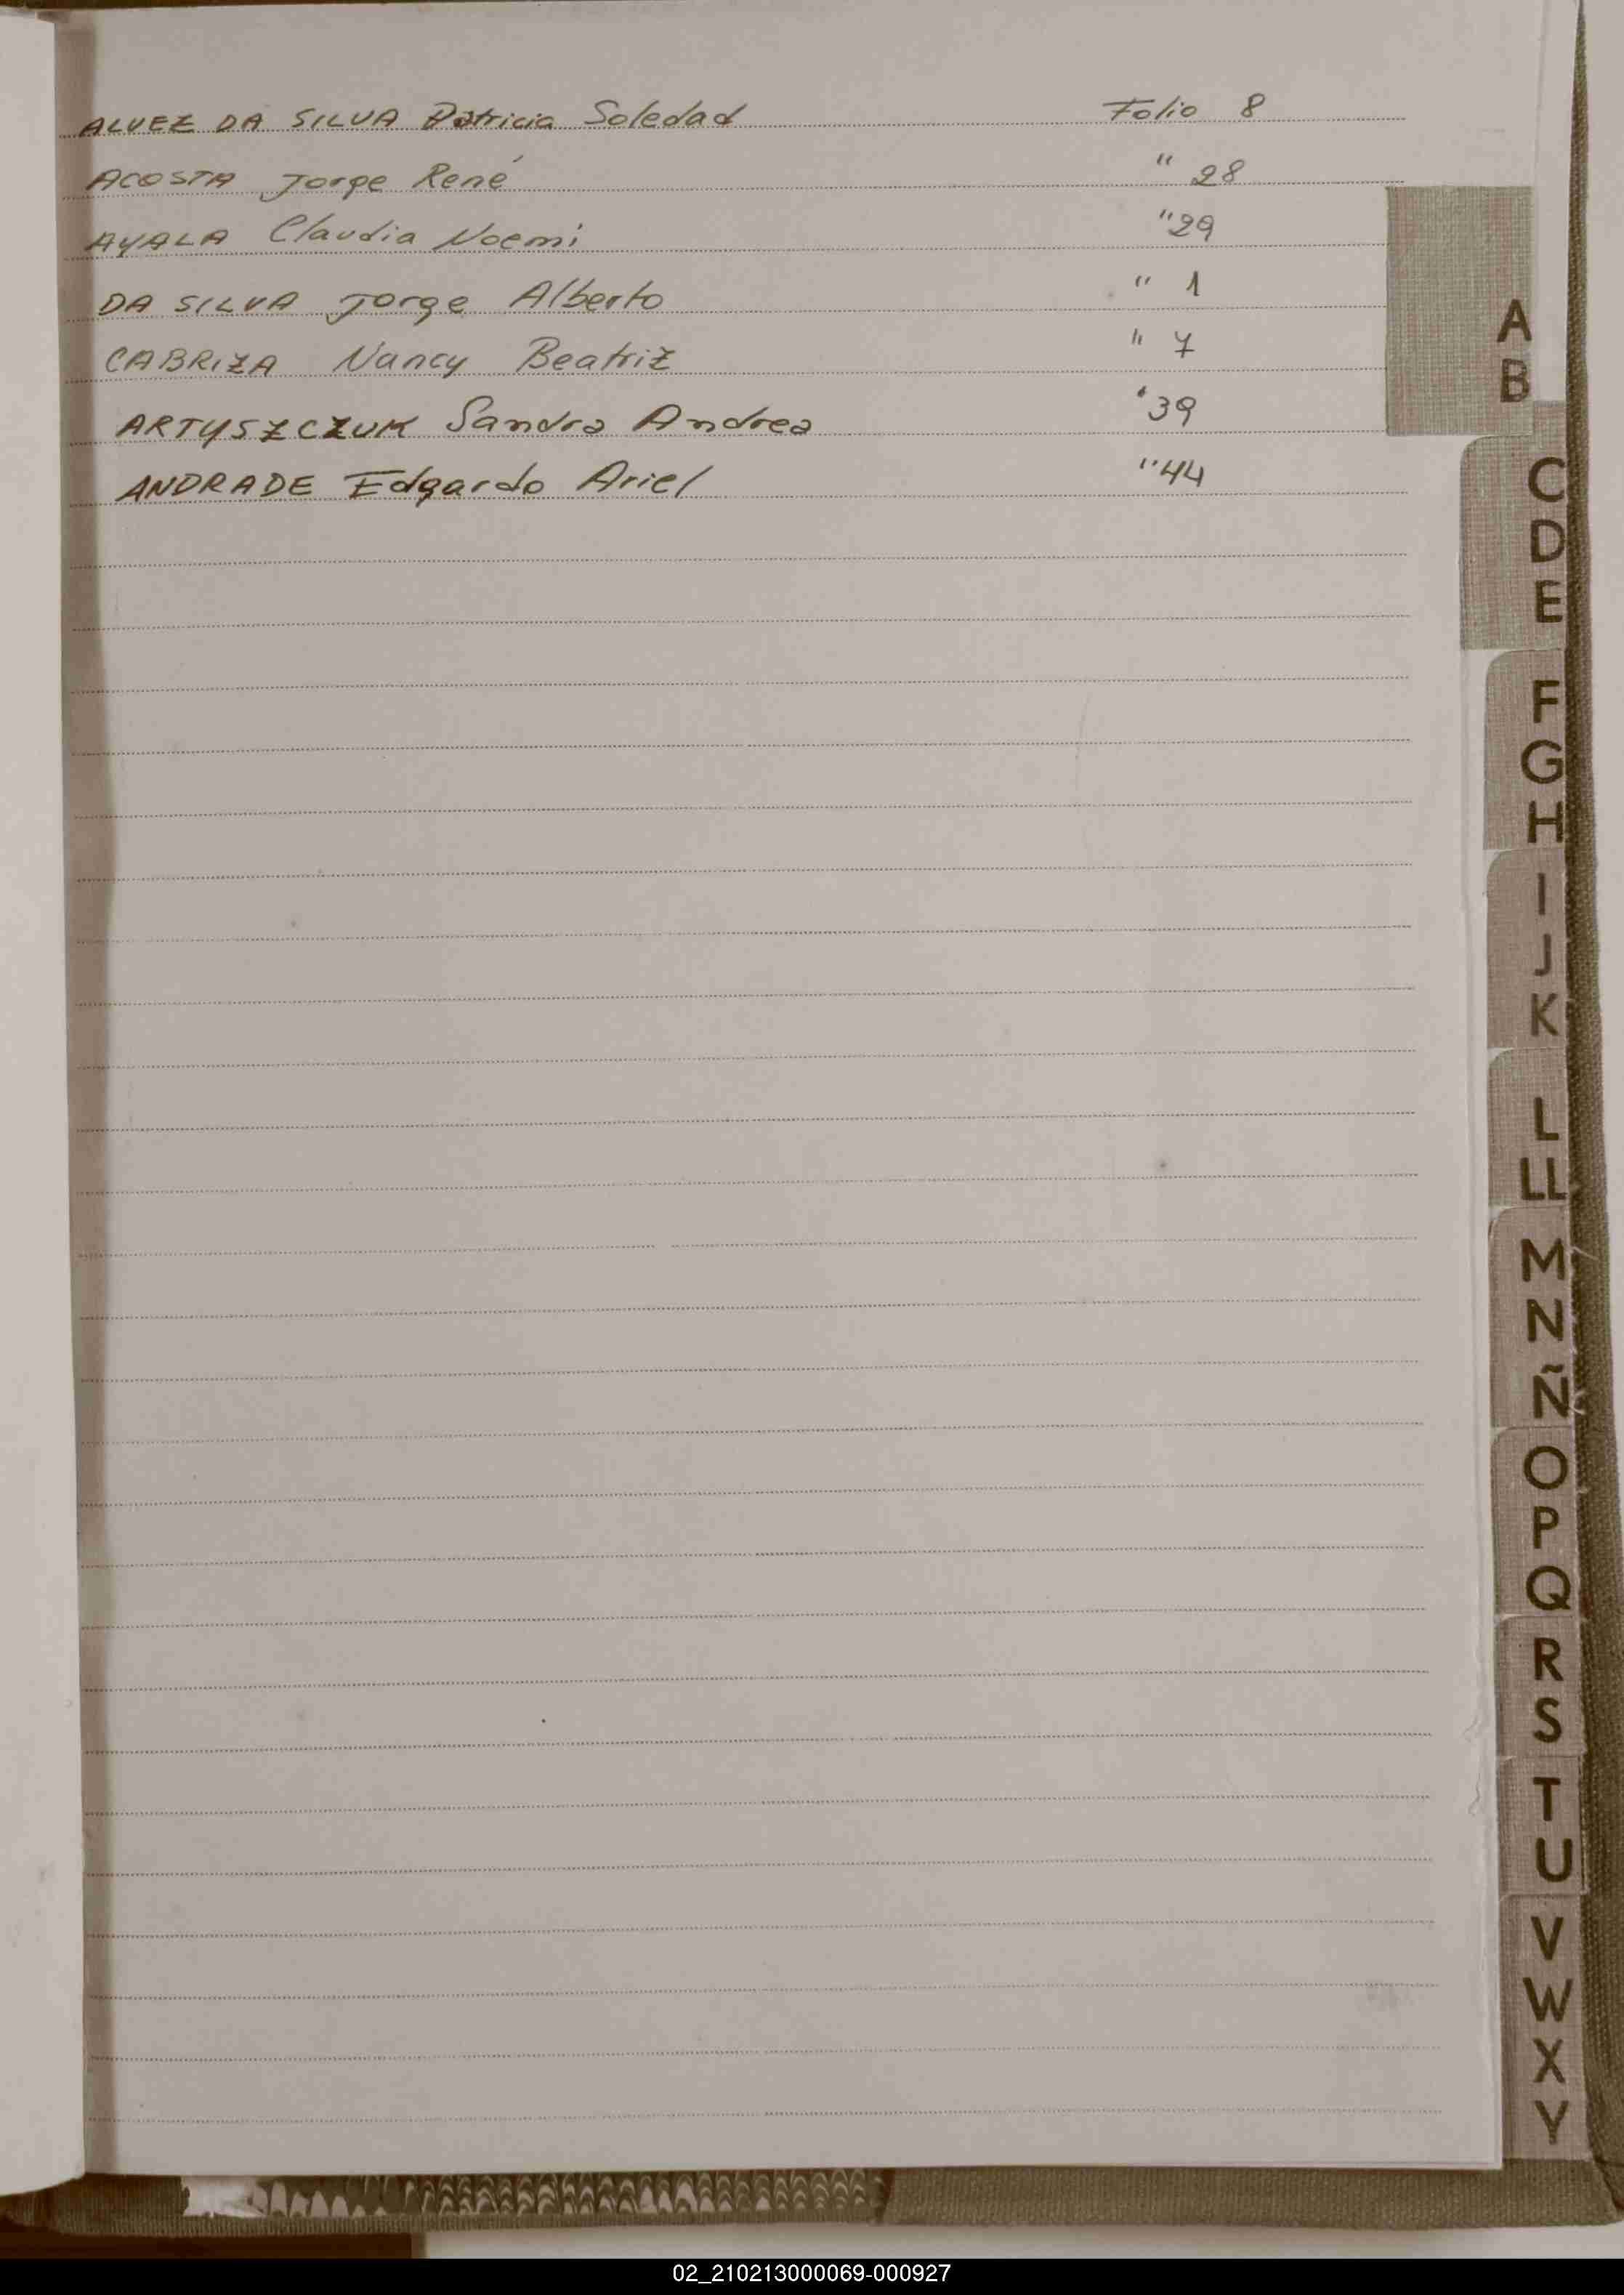 ALVEZ DA SILVA Patricia Soledad Folio 8
ACOSTA Jorge René " 28
AYALA Claudia Noemi " 29
DA SILVA Jorge Alberto " 1
CABRIZA Nancy Beatriz " 7
ARTYSZCZUK Sandra Andrea " 39
ANDRADE Edgardo Ariel " 44
A
B
C
D
E
F
G
H
I
J
K
L
LL
M
N
Ñ
O
P
Q
R
S
T
U
V
W
X
Y
02_210213000069-000927